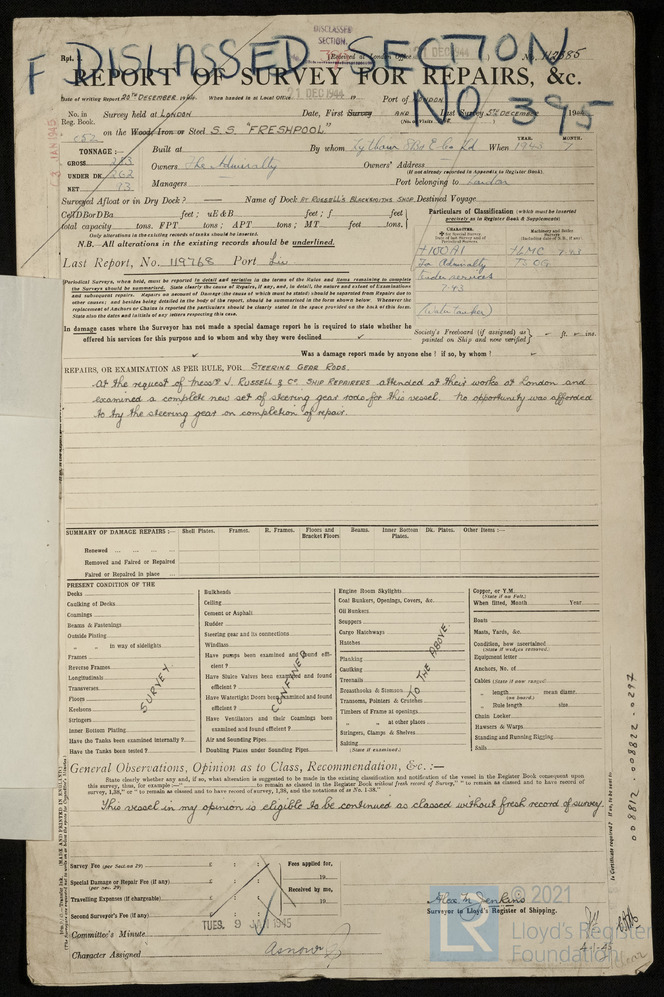 DISCLASSED
SECTION.
F DISCLASSED SECTION
Rpt.
(Received at London Office 21 DEC 1944) No. 112385
REPORT OF SURVEY FOR REPAIRS, &c.
Date of writing Report 20TH DECEMBER 1944. When handed in at Local Office 21 DEC 1944 19 Port of LONDON
NO 395
No. in Reg. Book. Survey held at LONDON Date, First Survey AND Last Survey 5TH DECEMBER 1944
3 JAN 1945
on the Wood, Iron or Steel S.S. "FRESHPOOL"
TONNAGE:— Built at By whom When 1943 7
YEAR. MONTH.
GROSS 283 Owners The Admiralty Owners' Address
(If not already recorded in Appendix to Register Book).
UNDER DK. 262
NET 93 Managers Port belonging to London
Surveyed Afloat or in Dry Dock? Name of Dock AT RUSSELL'S BLACKSMITHS SHOP Destined Voyage
Cell DB or DBa feet; uE&B feet; f feet
total capacity tons. FPT tons; APT tons; MT feet tons.
Only alterations in the existing records of tanks should be inserted.
N.B. All alterations in the existing records should be underlined.
Particulars of Classification (which must be inserted precisely as in Register Book & Supplements)
+100A1 +LMC 7.43
For Admiralty T.3.OG
Under services
7.43
(Water Tanker)
Last Report, No. 118768 Port Liv
Periodical Surveys, when held, must be reported in detail and seriatim in the terms of the Rules and items remaining to complete the Surveys should be summarised.
In damage cases where the Surveyor has not made a special damage report he is required to state whether he offered his services for this purpose and to whom and why they were declined
Society's Freeboard (if assigned) as painted on Ship and now verified ft. ins.
Was a damage report made by anyone else? if so, by whom?
REPAIRS, OR EXAMINATION AS PER RULE, FOR STEERING GEAR RODS.
At the request of Messrs J. RUSSELL & Co. SHIP REPAIRERS attended at their works at London and
examined a complete new set of steering gear rods for this vessel. No opportunity was afforded
to try the steering gear on completion of repair.
SUMMARY OF DAMAGE REPAIRS:— Shell Plates. Frames. R. Frames. Floors and Bracket Floors Beams. Inner Bottom Plates. Dk. Plates. Other Items:—
Renewed
Removed and Faired or Repaired
Faired or Repaired in place
PRESENT CONDITION OF THE
Decks
Caulking of Decks
Coamings
Beams & Fastenings
Outside Plating
" " in way of sidelights
Frames
Reverse Frames
Longitudinals
Transverses
Floors
Keelsons
Stringers
Inner Bottom Plating
Have the Tanks been examined internally?
Have the Tanks been tested?
SURVEY
Bulkheads
Ceiling
Cement or Asphalt
Rudder
Steering gear and its connections
Windlass
Have pumps been examined and found efficient?
Have Sluice Valves been examined and found efficient?
Have Watertight Doors been examined and found efficient?
Have Ventilators and their Coamings been examined and found efficient?
Air and Sounding Pipes
Doubling Plates under Sounding Pipes
CONFINED
Engine Room Skylights
Coal Bunkers, Openings, Covers, &c.
Oil Bunkers
Scuppers
Cargo Hatchways
Hatches
Planking
Caulking
Treenails
Breasthooks & Stemson
Transoms, Pointers & Crutches
Timbers of Frame at openings
" " at other places
Stringers, Clamps & Shelves
Salting
(State if examined.)
TO THE ABOVE.
Copper, or Y.M.
(State if on Felt.)
When fitted, Month Year
Boats
Masts, Yards, &c.
Condition, how ascertained
(State if wedges removed.)
Equipment letter
Anchors, No. of
Cables (State if now ranged)
" length mean diam.
(on board.)
" Rule length size
Chain Locker
Hawsers & Warps
Standing and Running Rigging
Sails
008812-008822-0297
General Observations, Opinion as to Class, Recommendation, &c.:—
State clearly whether any and, if so, what alteration is suggested to be made in the existing classification and notification of the vessel in the Register Book consequent upon
this survey, thus, for example:—" to remain as classed in the Register Book without fresh record of Survey," " to remain as classed and to have record of
survey, 1,38," or " to remain as classed and to have record of survey, 1,38, and the notations of ss No. 1-38."
This vessel in my opinion is eligible to be continued as classed without fresh record of survey.
Survey Fee (per Section 29) £ : : Fees applied for,
19
Special Damage or Repair Fee (if any) (per sec. 29) £ : : Received by me,
Travelling Expenses (if chargeable) £ : : 19
Second Surveyor's Fee (if any) £ : :
Alex M Jenkins
Surveyor to Lloyd's Register of Shipping.
Committee's Minute TUES. 9 JAN 1945
Character Assigned As now
4-1-45
© 2021
LR
Lloyd's Register
Foundation